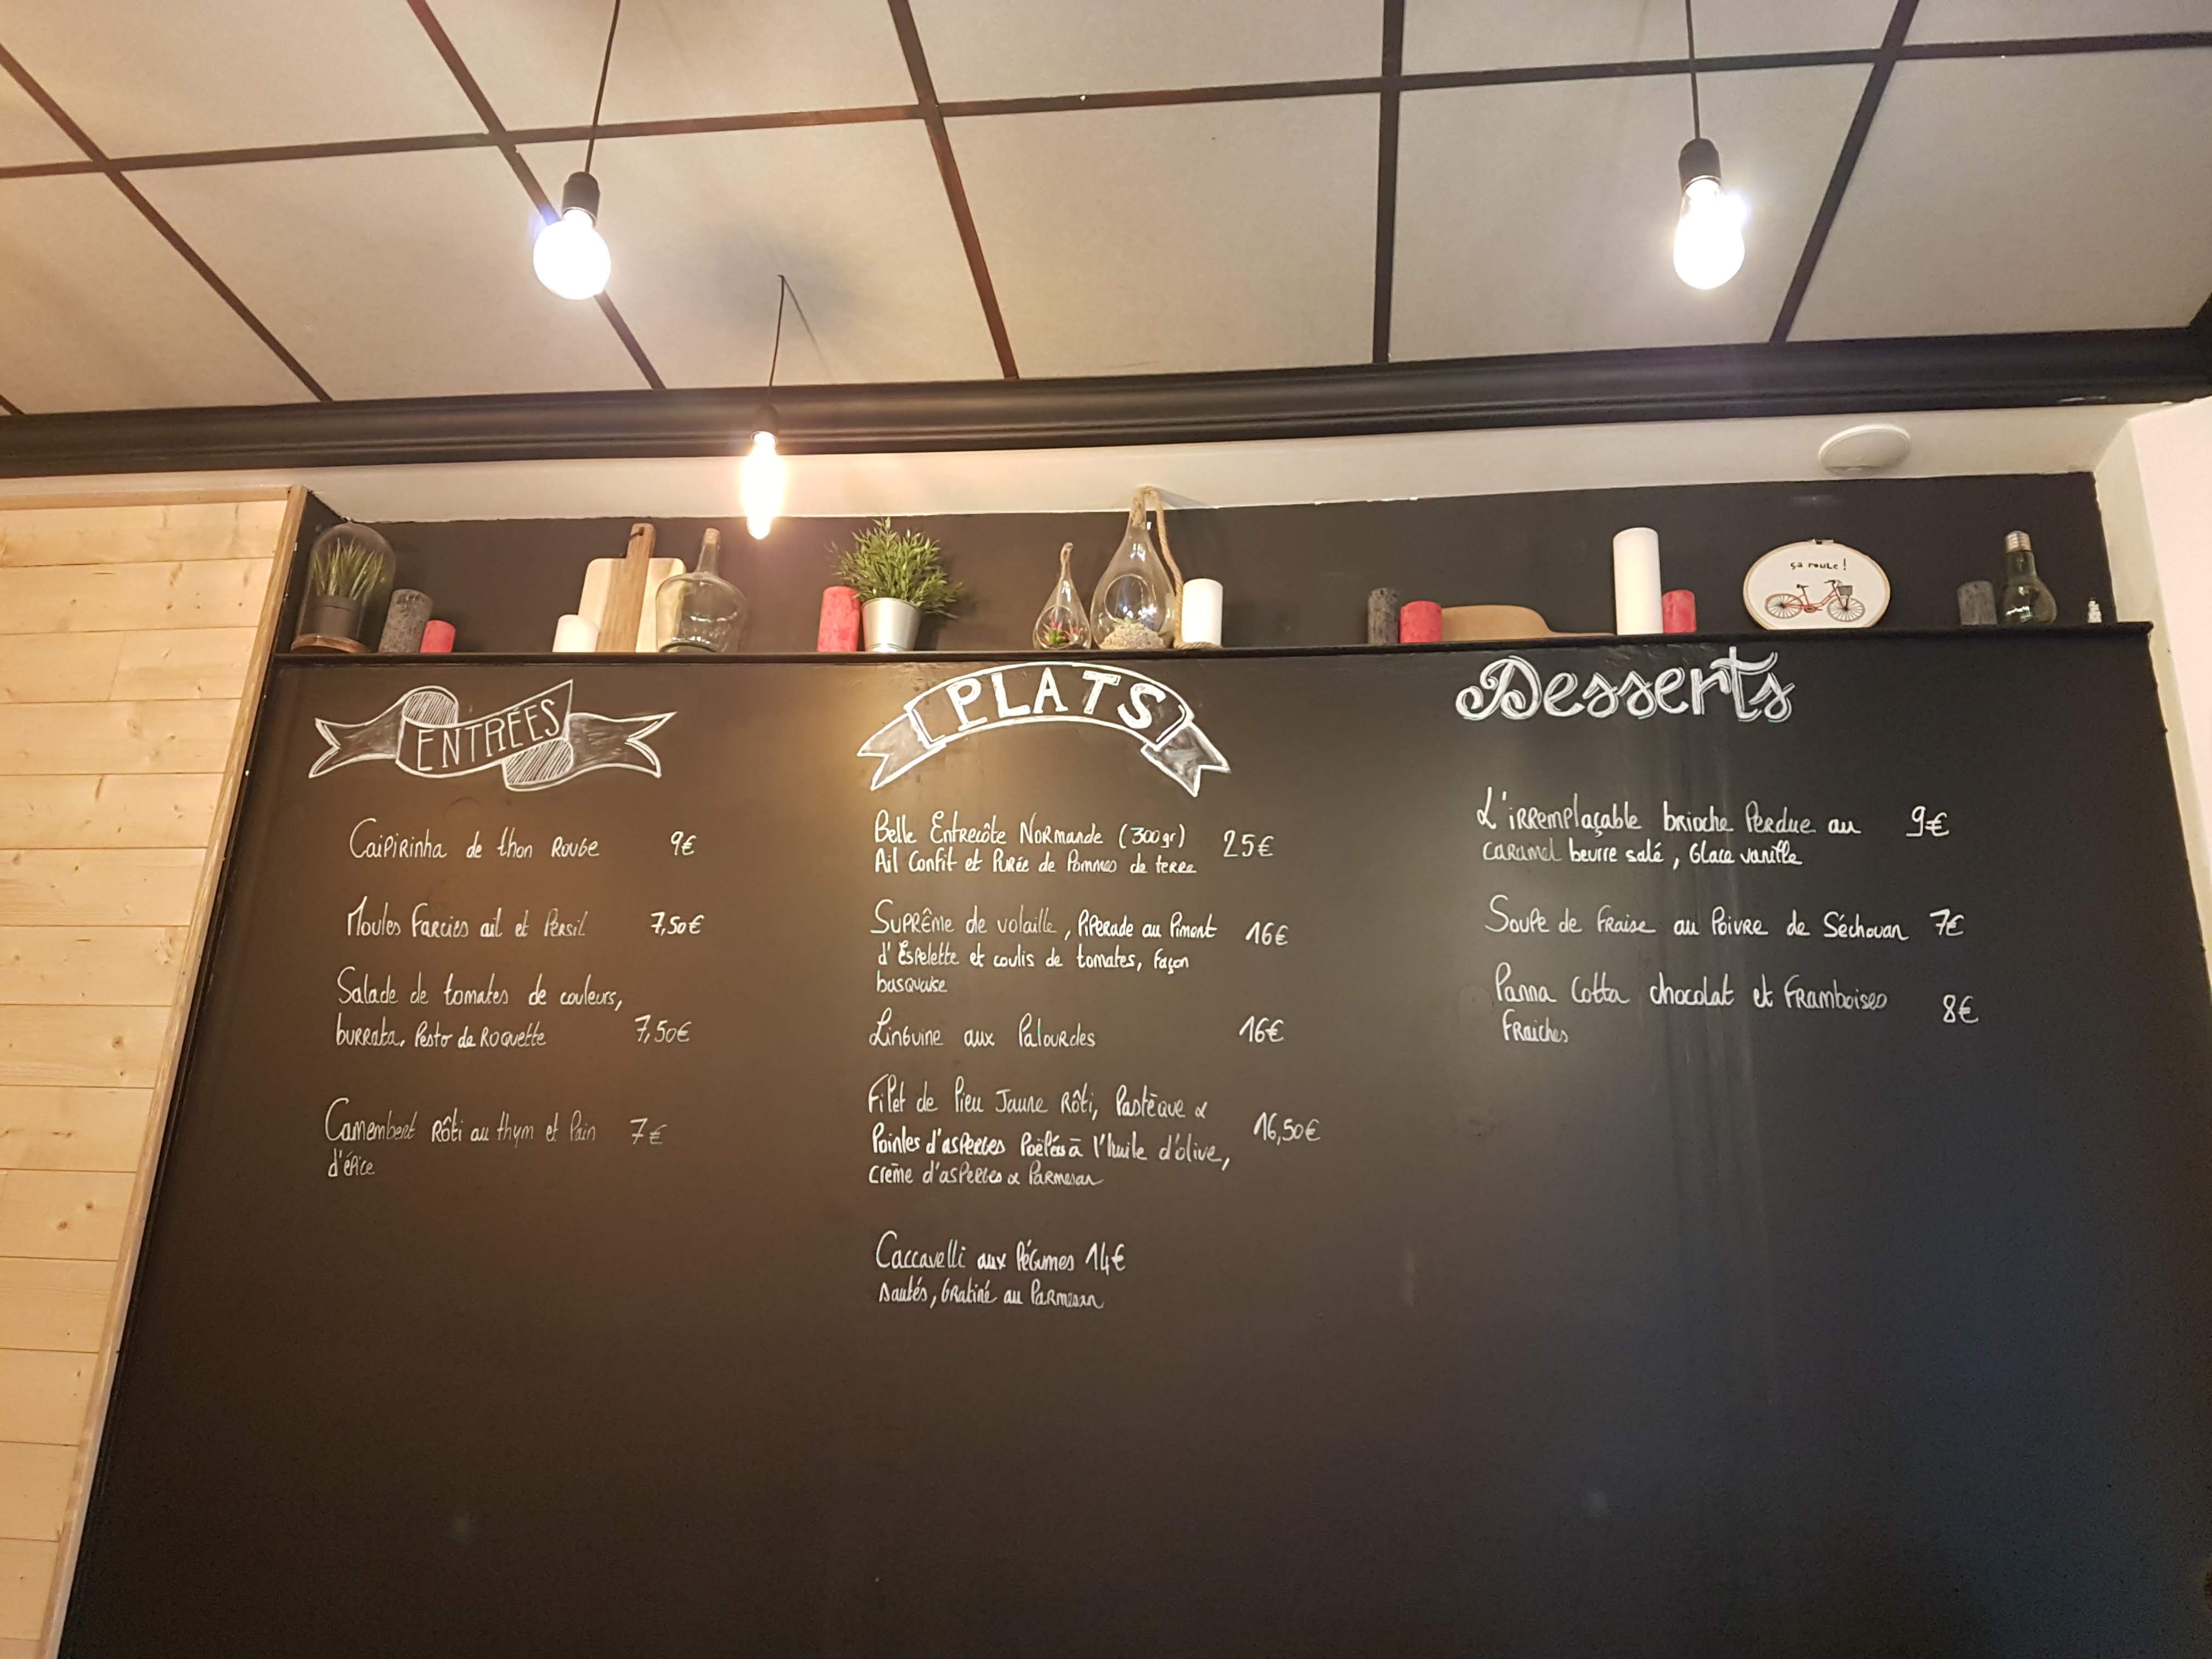 ça roule !
ENTRÉES
Caipirinha de thon Rouge 9€
Moules Farcies ail et Persil 7,50€
Salade de tomates de couleurs,
burrata, Pesto de Roquette 7,50€
Camembert Rôti au thym et Pain 7€
d'épice
PLATS
Belle Entrecôte Normande (300gr) 25€
Ail Confit et Purée de Pommes de terre
Suprême de volaille, Piperade au Piment 16€
d'Espelette et coulis de tomates, façon
basquaise
Linguine aux Palourdes 16€
Filet de Lieu Jaune Rôti, Pastèque &
Pointes d'asperges Poêlées à l'huile d'olive, 16,50€
crème d'asperges & Parmesan
Caccavelli aux légumes 14€
sautés, Gratiné au Parmesan
Desserts
L'irremplaçable brioche Perdue au 9€
caramel beurre salé, Glace vanille
Soupe de Fraise au Poivre de Séchouan 7€
Panna Cotta chocolat et Framboises 8€
Fraiches